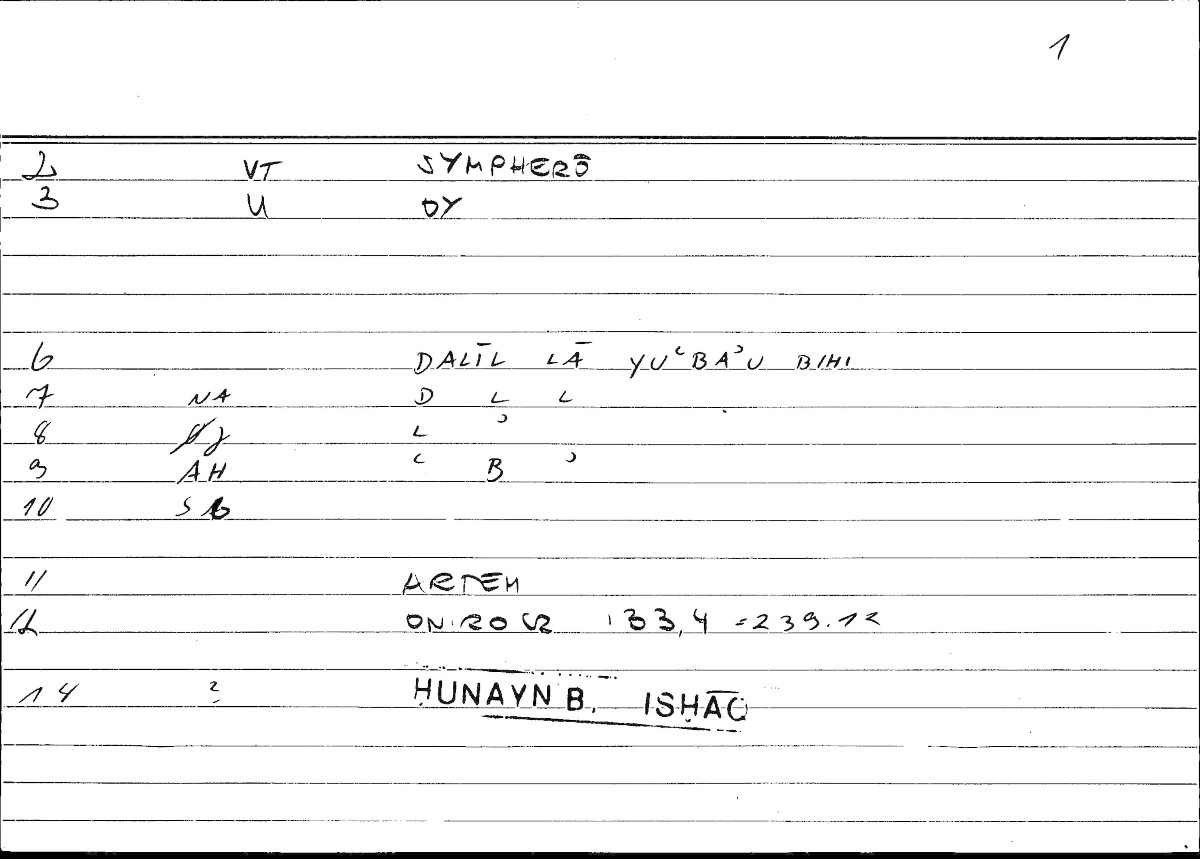 1
2 VT SYMPHERŌ
3 U OY
6 DALĪL LĀ YUʿBAʾU BIHI
7 NA D L L
8 L ʾ
9 AH ʿ B ʾ
10 S
11 ARTEM
12 ONIROCR 133,4 =239.12
14 ? ḤUNAYN B. ISḤĀQ